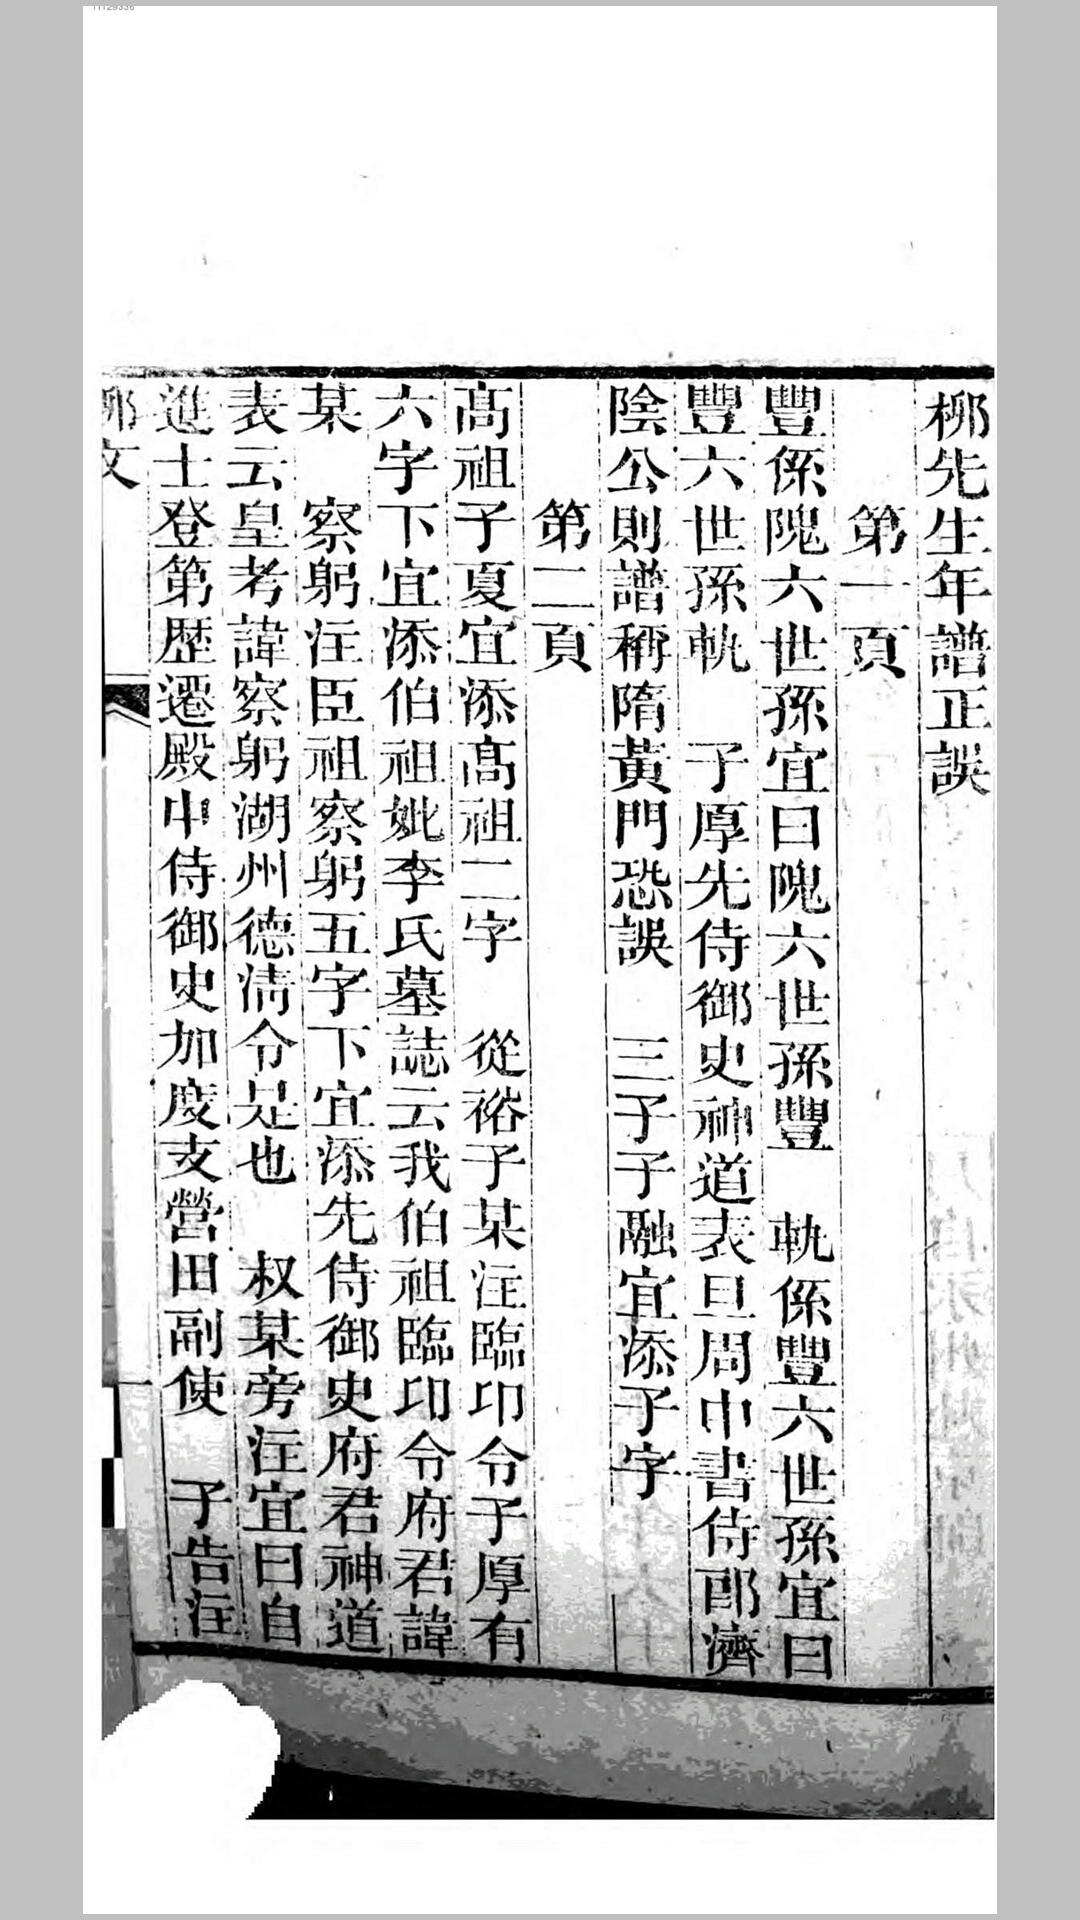 11129336
柳先生年譜正誤
第一頁
豐係隗六世孫宜曰隗六世孫豐　軌係豐六世孫宜曰
豐六世孫軌　子厚先侍御史神道表旦周中書侍郎濟
陰公則譜稱隋黃門恐誤　三子子融宜添子字
第二頁
高祖子夏宜添高祖二字　從裕子某注臨卭令子厚有
六字下宜添伯祖妣李氏墓誌云我伯祖臨卭令府君諱
某　察躬注臣祖察躬五字下宜添先侍御史府君神道
表云皇考諱察躬湖州德淸令是也　叔某旁注宜曰自
進士登第歷遷殿中侍御史加度支營田副使　子告注
柳文